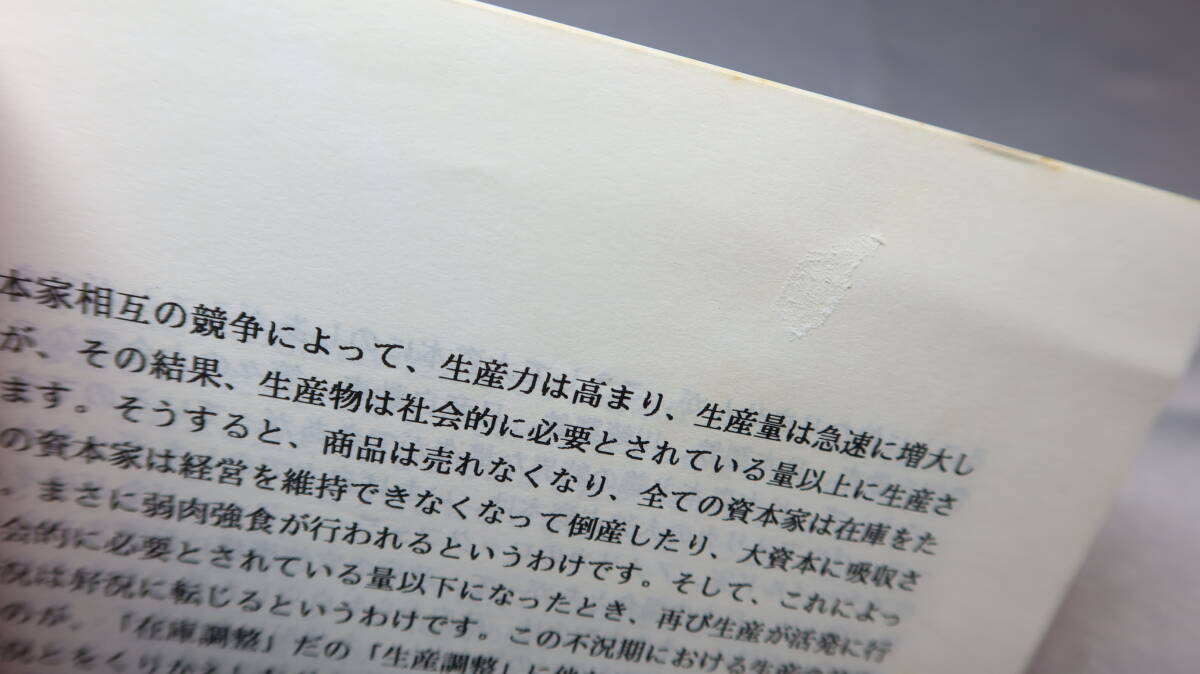 本家相互の競争によって、生産力は高まり、生産量は急速に増大し
が、その結果、生産物は社会的に必要とされている量以上に生産さ
ます。そうすると、商品は売れなくなり、全ての資本家は在庫をた
の資本家は経営を維持できなくなって倒産したり、大資本に吸収さ
。まさに弱肉強食が行われるというわけです。そして、これによっ
会的に必要とされている量以下になったとき、再び生産が活発に行
況は好況に転じるというわけです。この不況期における生産の
のが、「在庫調整」だの「生産調整」に